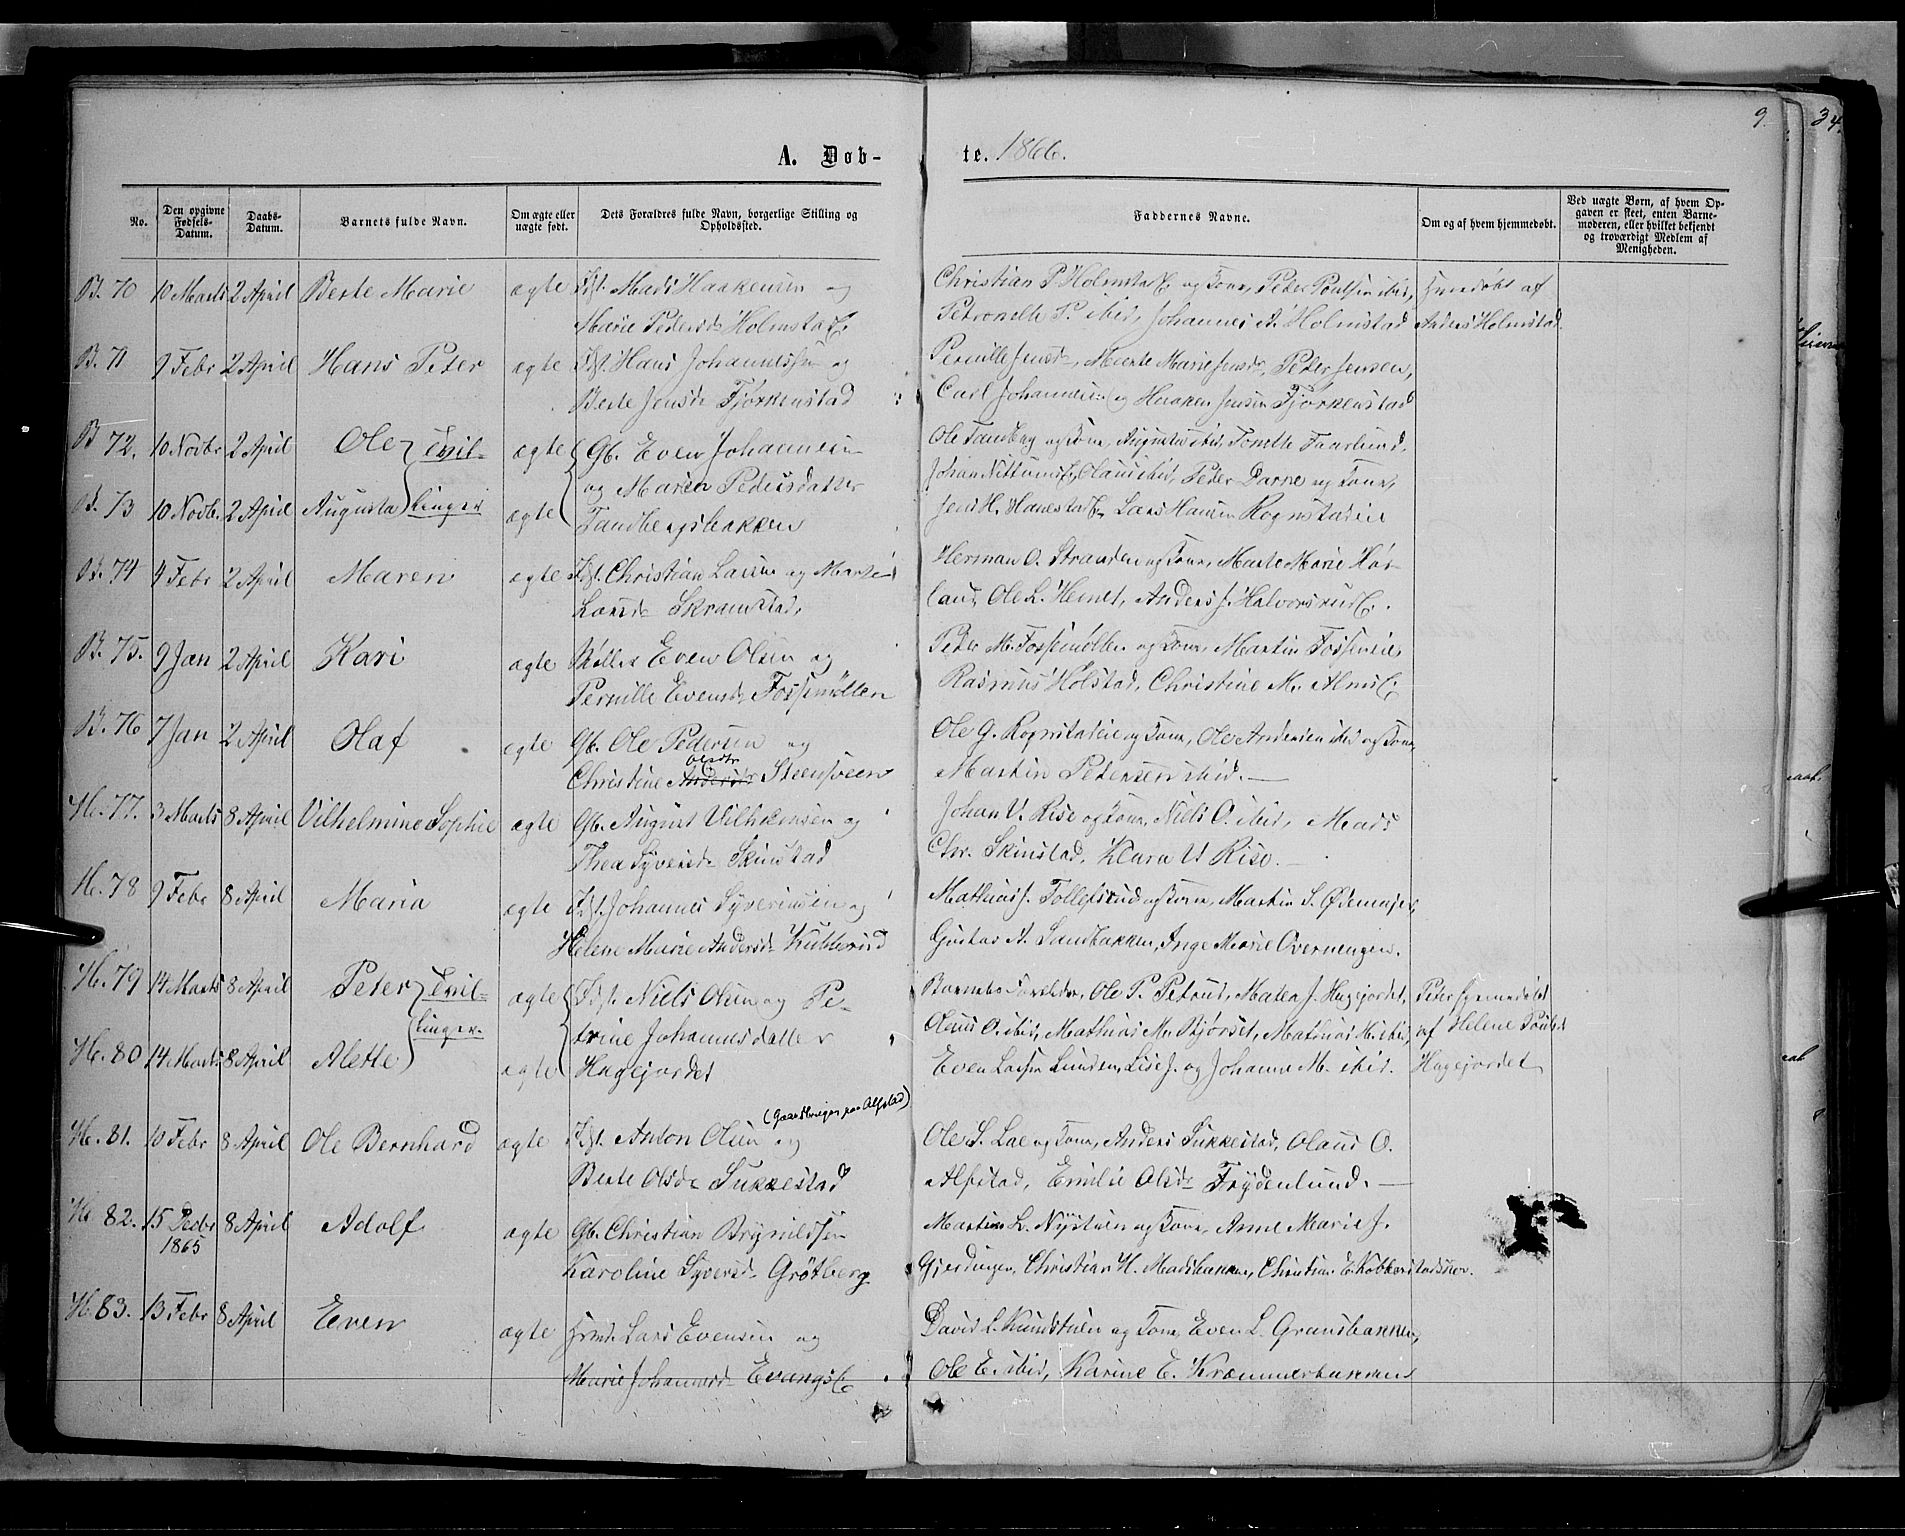 9
34
A. Døb-
te. 1866.
No.
Den opgivne Fødsels-Datum.
Daabs-Datum.
Barnets fulde Navn.
Om ægte eller uægte født.
Dets Forældres fulde Navn, borgerlige Stilling og Opholdssted.
Faddernes Navne.
Om og af hvem hjemmedøbt.
Ved uægte Børn, af hvem Op-
gaven er skeet, enten Barne-
moderen, eller hvilket bekjendt
og troværdigt Medlem af
Menigheden.
B. 70 10 Marts 2 April Berte Marie ægte Mads Haakensen og
Marie Pedersd Holmstad
Christian P Holmstad og Kone, Peder Poulsen ibid,
Petronelle P. ibid, Johannes A. Holmstad
Hjemdøbt af
Anders Holmstad
B. 71 9 Febr 2 April Hans Peter ægte Hans Johannessen og
Berte Jensd Fjørkenstad
Pernille Jensd, Marte Marie Jensd, Peter Jensen,
Carl Johannesen og Haaken Jensen Fjørkenstad
B 72. 10 Novbr 2 April Ole Tvil- ægte Gb. Even Johannesen
B. 73 10 Novb. 2 April Augusta linger ægte og Maren Pedersdatter
Tandbergsbakken
Ole Tandberg og Kone, Augusta ibid, Tonette Faarlund,
Johan Nittum, Olaus ibid, Peder Darne og Kone,
Jens H. Hanestad, Lars Hansen Rognstadeie
B. 74 4 Febr 2 April Maren ægte Christian Larsen og Marte
Larsd Skramstad,
Herman O. Stranden og Kone, Marte Marie
Ole L. Hemet, Anders J. Halvorsrud
B. 75. 9 Jan 2 April Kari ægte Møller Even Olsen og
Pernille Evensd Fossemøllen
Peder M. Fossemøllen og Kone, Martin Fosseneie,
Rasmus Holstad, Christine M.
B. 76 7 Jan 2 April Olaf ægte Gb. Ole Pedersen og
Olsdtr
Christine Andersdr Steensveen
Ole G. Rognstadeie og Kone, Ole Andersen ibid og Kone
Martin Petersen ibid.
H. 77. 3 Marts 8 April Vilhelmine Sophie ægte Gb. August Vilhelmsen og
Thea Syversd Skinstad
Johan V. Rise og Kone, Niels O. ibid, Mads
Chr. Skinstad, Klara V Rise.
H. 78 9 Febr 8 April Maria ægte Johannes Syverinsen og
Helene Marie Andersd Kubberud
Mathias J. Tollefsrud og Kone, Martin S. Ødemarken,
Gustav A. Sandbakken, Inge Marie Overnengen.
H. 79 14 Marts 8 April Peter Tvil- ægte Niels Olsen og Pe-
linger. trine Johannesdatter
H. 80 14 Marts 8 April Alette ægte Hagejordet
Barnets Forældre, Ole P. Petrud, Maten J. Hagejordet,
Olaus O. ibid, Mathias M. Bjørset, Mathias H. ibid,
Even Larsen Lunden, Lise J. og Johanne M. ibid.
Peter hjemmedøbt
af Helene Pouls
Hagejordet
(Gaardbruger paa Alfstad)
H. 81. 10 Febr 8 April Ole Bernhard ægte Anton Olsen og
Berte Olsd Sukkestad
Ole S. Lae og Kone, Anders Sukkestad, Olaus O.
Alfstad, Emilie Olsd Frydenlund.
H 82. 15 Decbr 1865 8 April Adolf ægte Gb. Christian Brynildsen
Karoline Syversd Grøtberg
Martin L. Nystuen og Kone, Anne Marie J.
Gjerdingen, Christian H. Madsbakken, Christian E.
H. 83. 13 Febr 8 April Even ægte Lars Evensen og
Marie Johannesd Evang
David L. Kundstuen og Kone, Even L. Grandbakken,
Ole E. ibid, Karine E. Kræmmerbakken